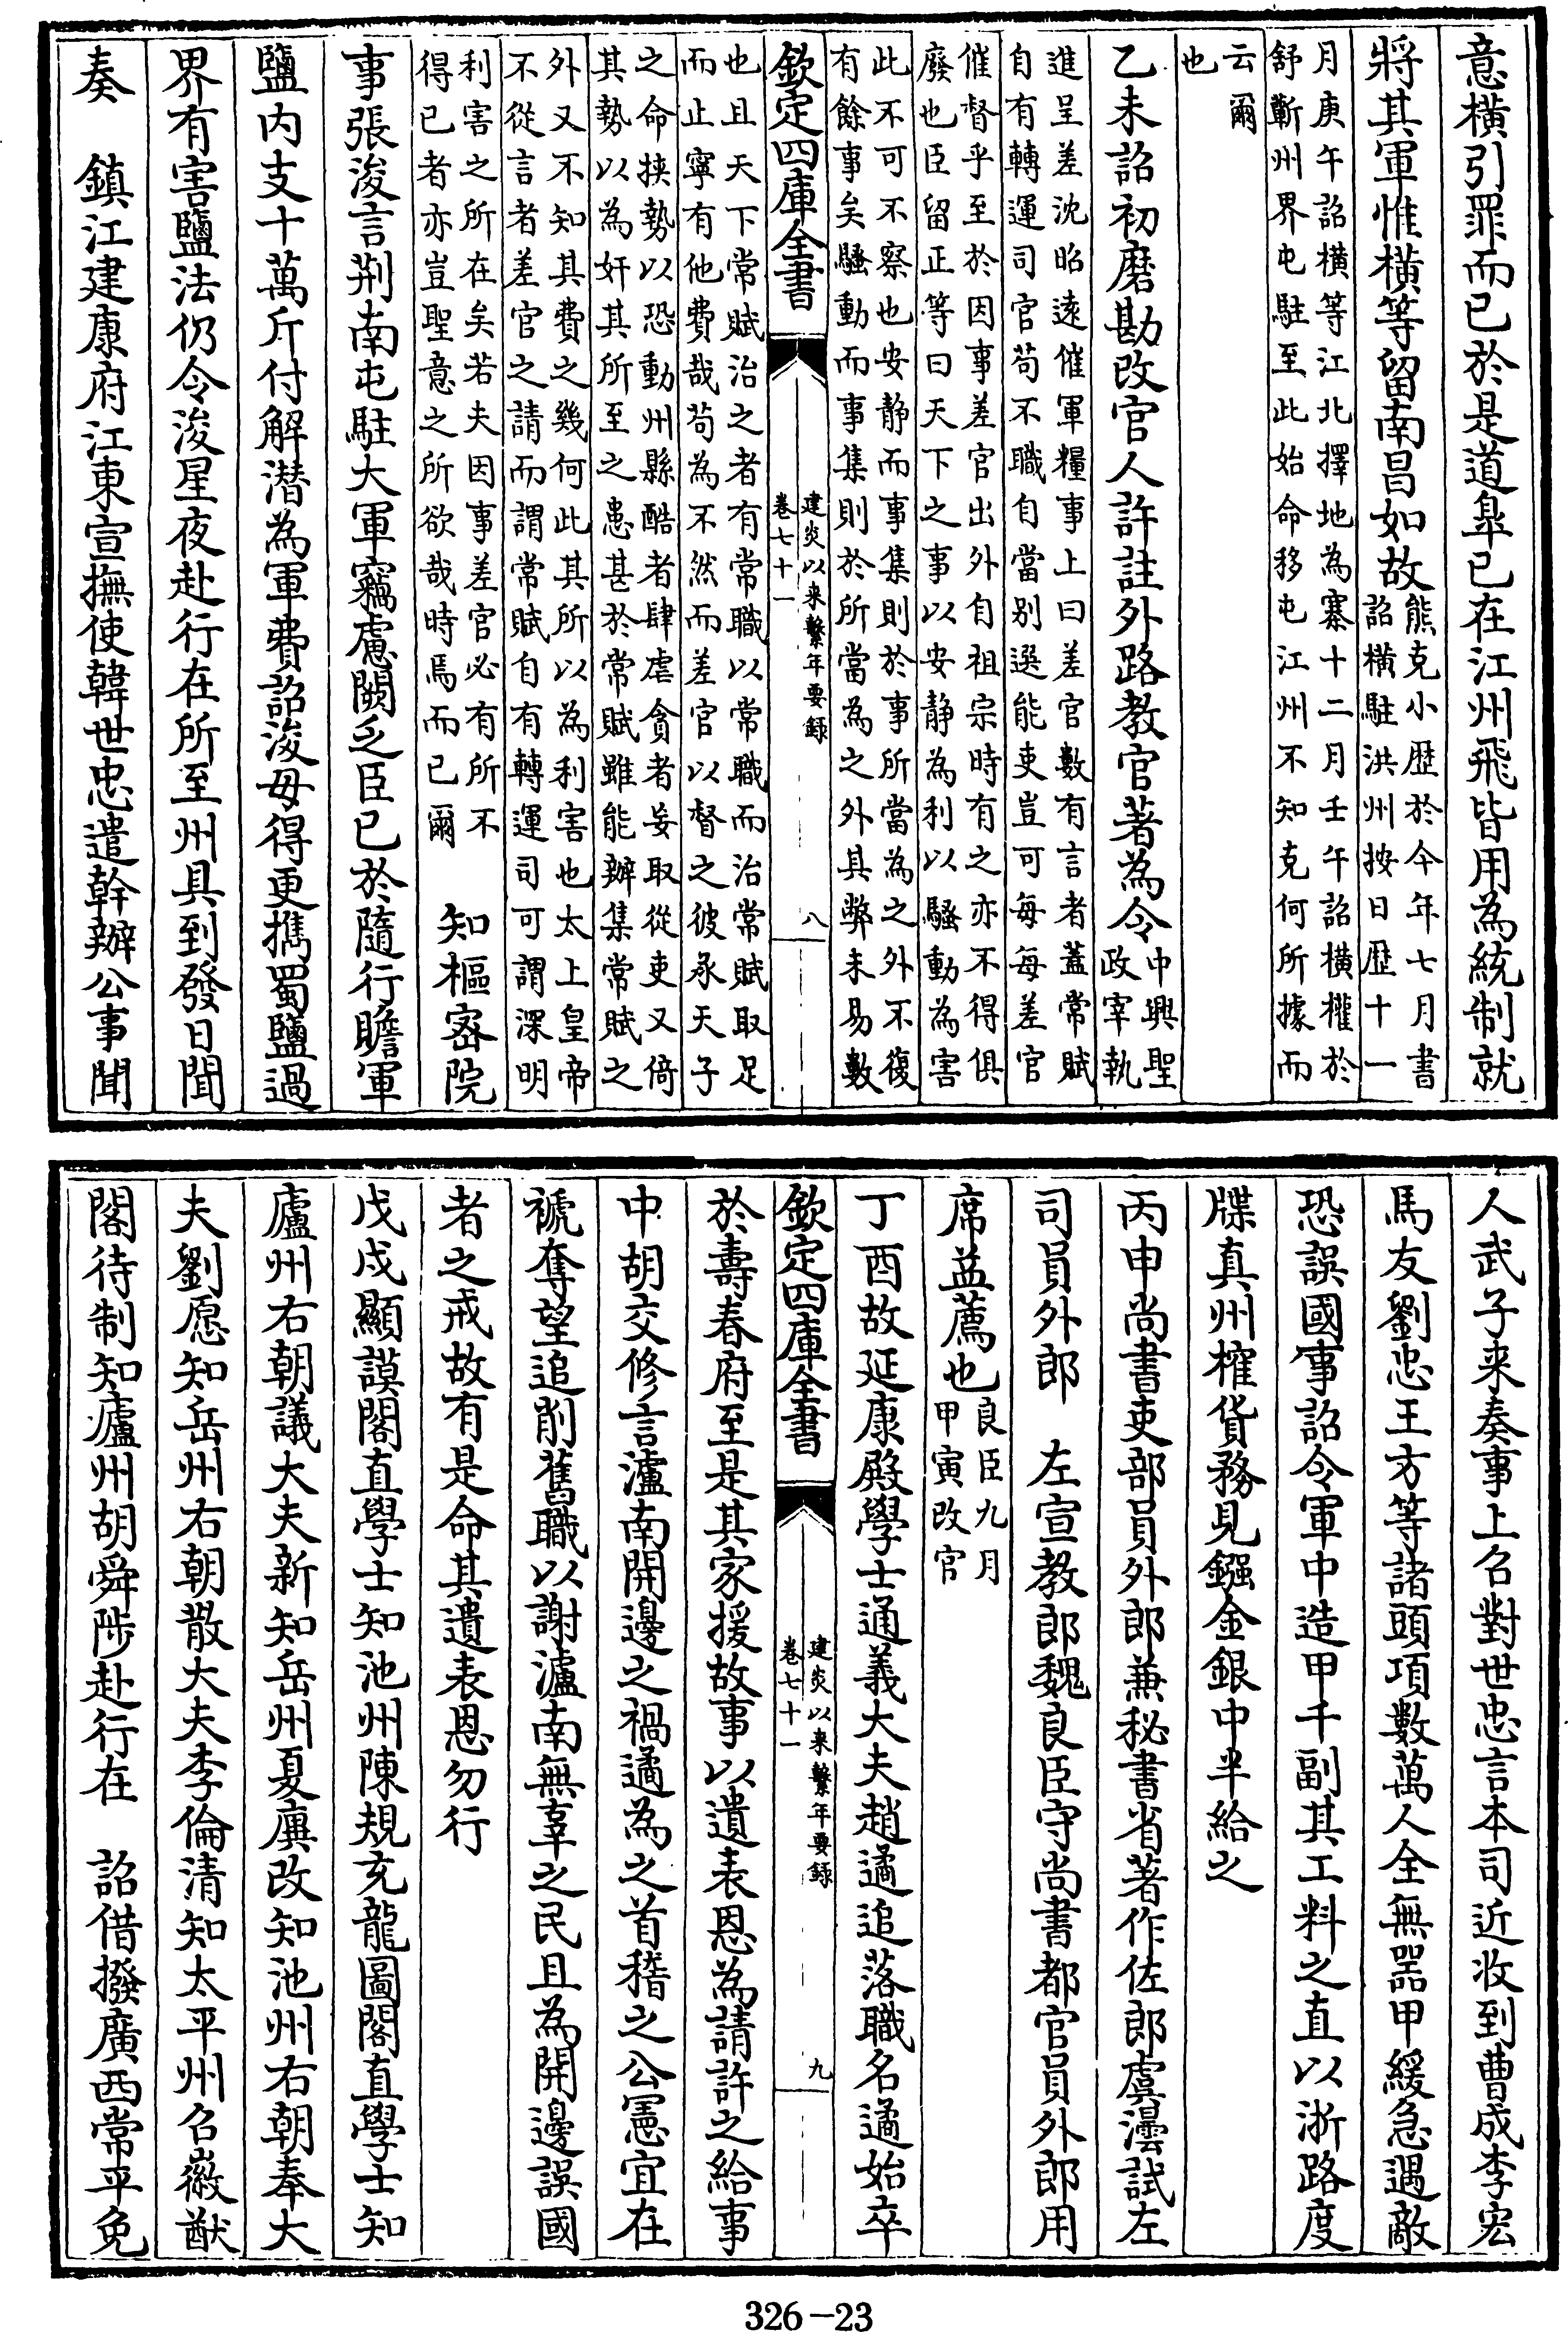 意橫引罪而已於是道臯已在江州飛皆用為統制就
將其軍惟橫等留南昌如故熊克小歴於今年七月書
詔橫駐洪州按日歴十一
月庚午詔橫等江北擇地為寨十二月壬午詔橫權於
舒蘄州界屯駐至此始命移屯江州不知克何所據而
云爾
也
乙未詔初磨勘改官人許註外路教官著為令中興聖
政宰執
進呈差沈昭遠催軍糧事上曰差官數有言者蓋常賦
自有轉運司官苟不職自當别選能吏豈可每每差官
催督乎至於因事差官出外自祖宗時有之亦不得俱
廢也臣留正等曰天下之事以安静為利以騷動為害
此不可不察也安静而事集則於事所當為之外不復
有餘事矣騷動而事集則於所當為之外其弊未易數
欽定四庫全書
建炎以来繫年要録
卷七十一
八
也且天下常賦治之者有常職以常職而治常賦取足
而止寧有他費哉苟為不然而差官以督之彼承天子
之命挟勢以恐動州縣酷者肆虐貪者妄取從吏又倚
其勢以為奸其所至之患甚於常賦雖能辦集常賦之
外又不知其費之幾何此其所以為利害也太上皇帝
不從言者差官之請而謂常賦自有轉運司可謂深明
利害之所在矣若夫因事差官必有所不
得已者亦豈聖意之所欲哉時焉而已爾
知樞宻院
事張浚言荆南屯駐大軍竊慮闕乏臣已於隨行贍軍
鹽内支十萬斤付解潜為軍費詔浚毋得更擕蜀鹽過
界有害鹽法仍令浚星夜赴行在所至州具到發日聞
奏　鎮江建康府江東宣撫使韓世忠遣幹辦公事聞
人武子来奏事上召對世忠言本司近收到曹成李宏
馬友劉忠王方等諸頭項數萬人全無器甲緩急遇敵
恐誤國事詔令軍中造甲千副其工料之直以浙路度
牒真州榷貨務見錢金銀中半給之
丙申尚書吏部員外郎兼秘書省著作佐郎虞澐試左
司員外郎　左宣教郎魏良臣守尚書都官員外郎用
席益薦也良臣九月
甲寅改官
丁酉故延康殿學士通義大夫趙遹追落職名遹始卒
欽定四庫全書
建炎以来繫年要録
卷七十一
九
於壽春府至是其家援故事以遺表恩為請許之給事
中胡交修言瀘南開邊之禍遹為之首稽之公憲宜在
褫奪望追削舊職以謝瀘南無辜之民且為開邊誤國
者之戒故有是命其遺表恩勿行
戊戌顯謨閣直學士知池州陳規充龍圖閣直學士知
廬州右朝議大夫新知岳州夏㢘改知池州右朝奉大
夫劉愿知岳州右朝散大夫李倫清知太平州召徽猷
閣待制知廬州胡舜陟赴行在　詔借撥廣西常平免
326-23